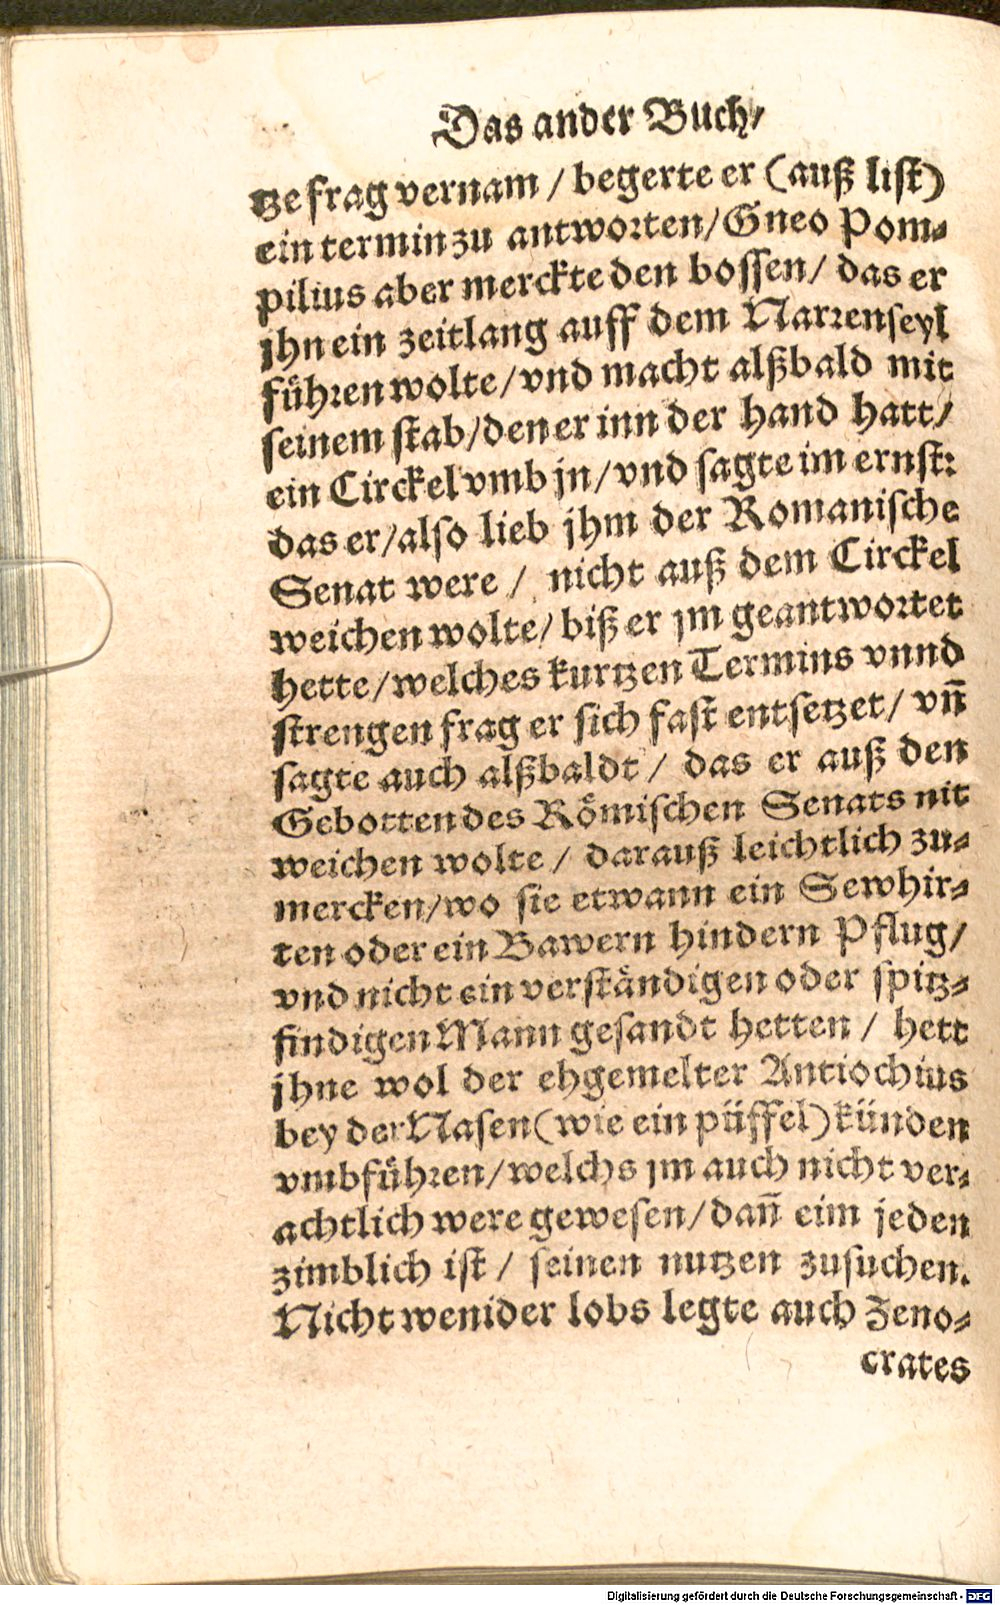 Das ander Buch/
tze frag vernam / begerte er (auß list)
ein termin zu antworten/Gneo Pom⸗
pilius aber merckte den bossen/ das er
jhn ein zeitlang auff dem Narrenseyl
führen wolte/vnd macht alßbald mit
seinem stab/den er inn der hand hatt/
ein Circkel vmb jn/vnd sagte im ernst:
das er/also lieb jhm der Romanische
Senat were / nicht auß dem Circkel
weichen wolte/ biß er jm geantwortet
hette/welches kurtzen Termins vnnd
strengen frag er sich fast entsetzet/ vñ
sagte auch alßbaldt / das er auß den
Gebotten des Römischen Senats nit
weichen wolte / darauß leichtlich zu⸗
mercken/wo sie etwann ein Sewhir⸗
ten oder ein Bawern hindern Pflug/
vnd nicht ein verständigen oder spitz⸗
findigen Mann gesandt hetten / hett
jhne wol der ehgemelter Antiochius
bey der Nasen(wie ein püffel)künden
vmbführen/welchs jm auch nicht ver⸗
achtlich were gewesen/dañ eim jeden
zimblich ist / seinen nutzen zusuchen.
Nicht wenider lobs legte auch Zeno⸗
crates
Digitalisierung gefördert durch die Deutsche Forschungsgemeinschaft - DFG